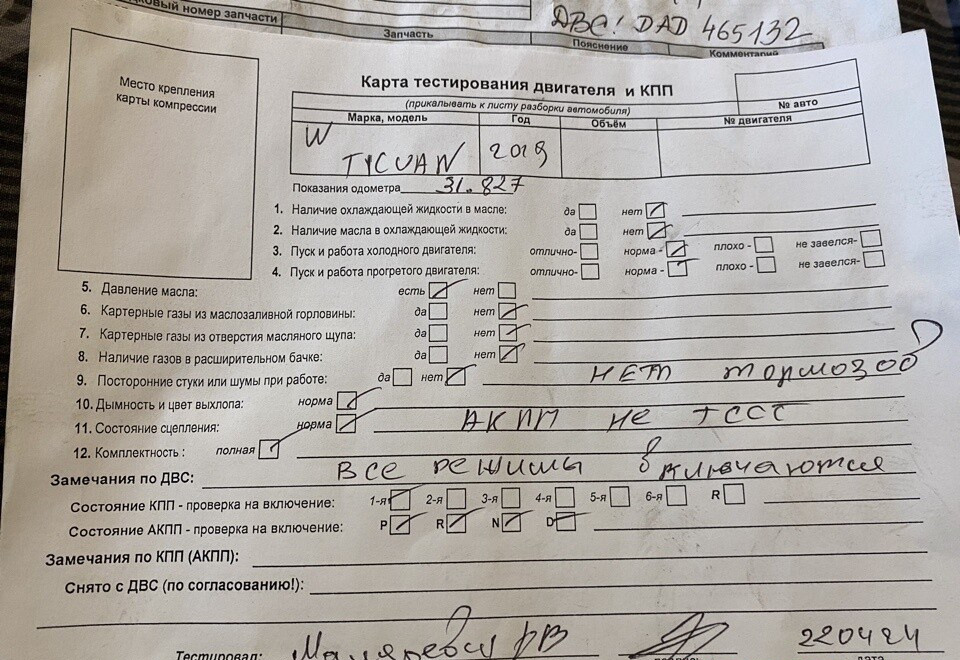 ковый номер запчасти
ДВС! DAD 465132
Запчасть Пояснение Комментарий
Место крепления
карты компрессии
Карта тестирования двигателя и КПП
(прикалывать к листу разборки автомобиля)
№ авто
Марка, модель Год Объём № двигателя
W
TICUAN 2019
Показания одометра 31.827
1. Наличие охлаждающей жидкости в масле: да нет
2. Наличие масла в охлаждающей жидкости: да нет
3. Пуск и работа холодного двигателя: отлично- норма- плохо - не завелся-
4. Пуск и работа прогретого двигателя: отлично- норма - плохо - не завелся-
5. Давление масла: есть нет
6. Картерные газы из маслозаливной горловины: да нет
7. Картерные газы из отверстия масляного щупа: да нет
8. Наличие газов в расширительном бачке: да нет
9. Посторонние стуки или шумы при работе: да нет нет тормозов
10. Дымность и цвет выхлопа: норма
11. Состояние сцепления: норма АКПП не
12. Комплектность : полная
Замечания по ДВС: Все режимы включаются
Состояние КПП - проверка на включение: 1-я 2-я 3-я 4-я 5-я 6-я R
Состояние АКПП - проверка на включение: P R N D
Замечания по КПП (АКПП):
Снято с ДВС (по согласованию!):
Тестировал: РВ 220424
подпись дата